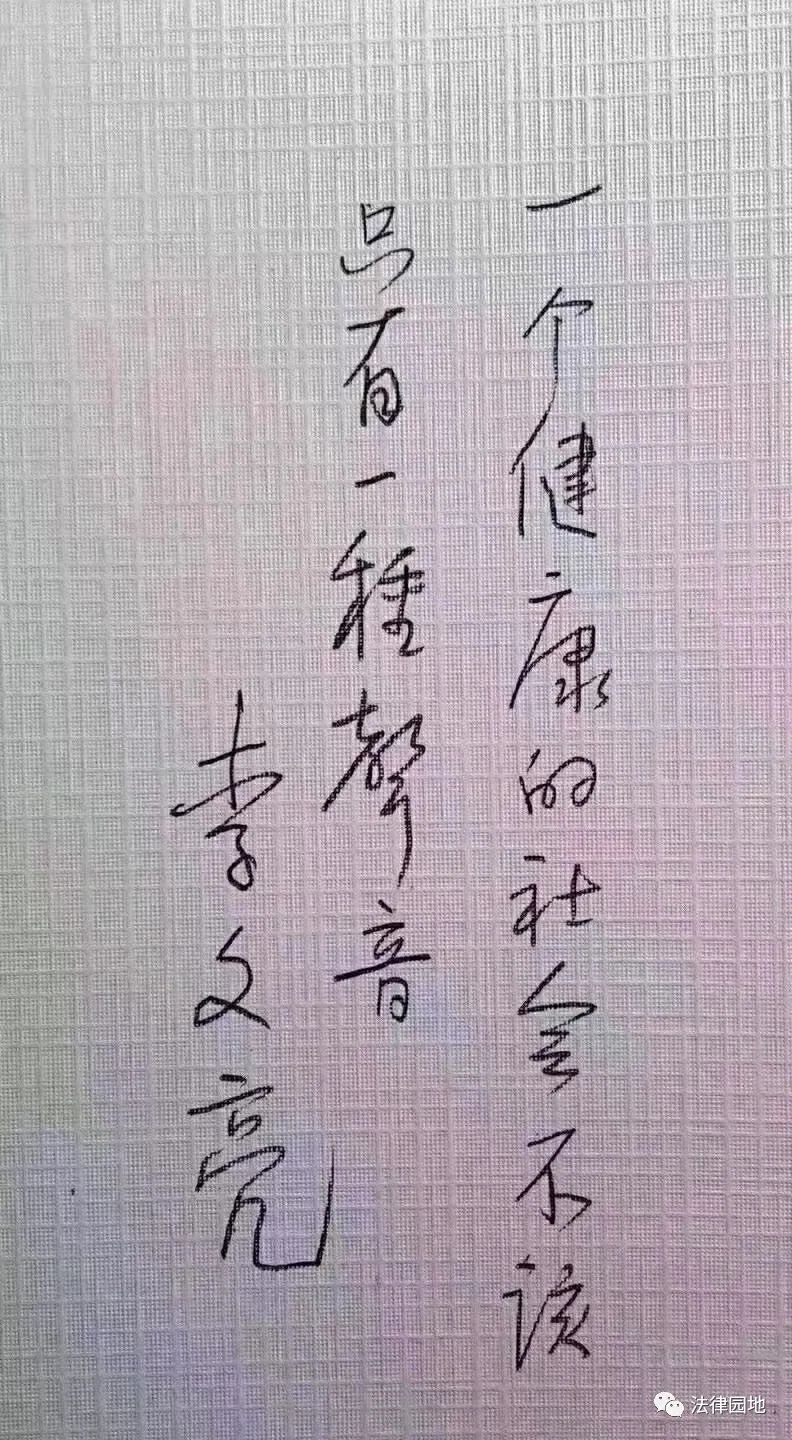 一个健康的社会不该
只有一种聲音
李文亮
法律园地